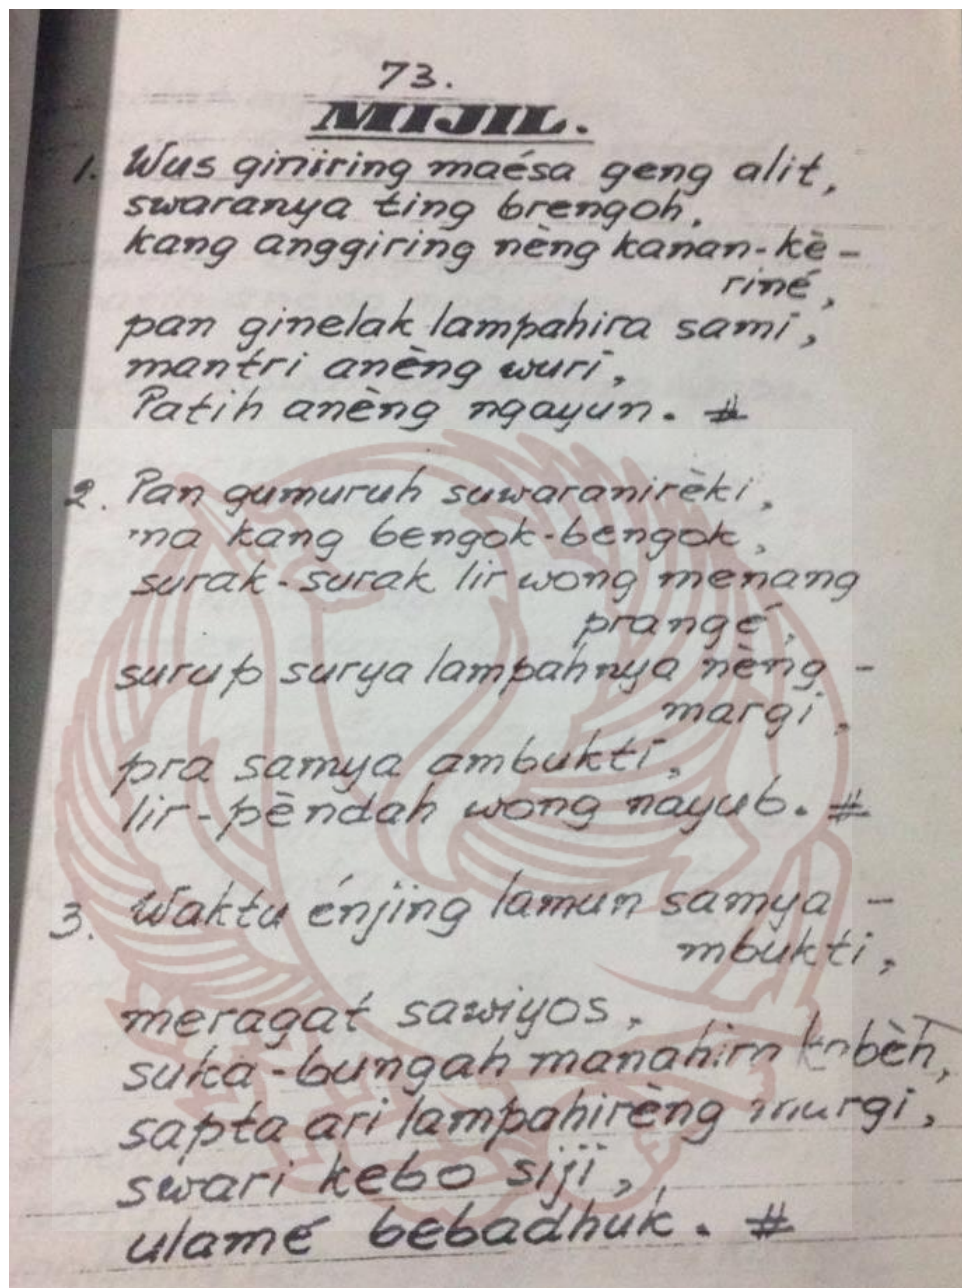 73.
MIJIL.
1. Wus giniring maésa geng alit,
swaranya ting brengoh,
kang anggiring nèng kanan-kè-
riné,
pan ginelak lampahira sami,
mantri anèng wuri,
Patih anèng ngayun. #
2. Pan gumuruh suwaranirèki,
na kang bengok-bengok,
surak-surak lir wong menang
prangé,
surup surya lampahnya nèng-
margi,
pra samya ambukti,
lir-pèndah wong nayub. #
3. Waktu énjing lamun samya-
mbukti,
meragat sawiyos,
suka-bungah manahira kabèh,
sapta ari lampahirèng margi,
swari kebo siji,
ulamé bebadhuk. #